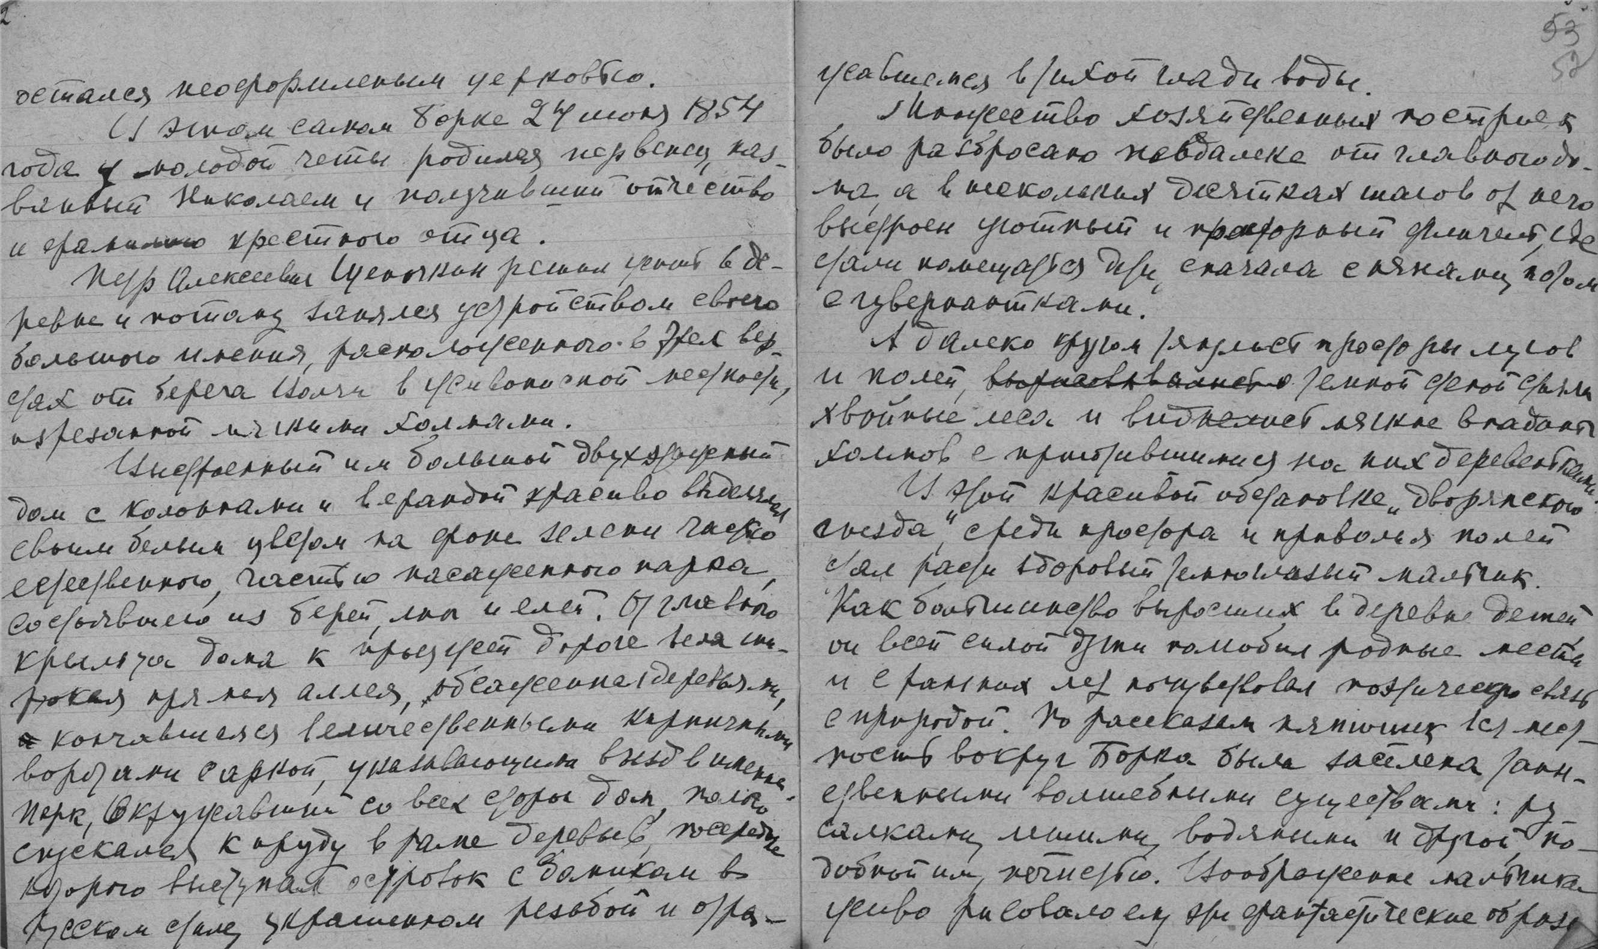 2
остался неоформленым церковью.
В этом самом Борке 24 июня 1854
года у молодой четы родился первенец, наз-
ванный Николаем и получивший отчество
и фамилию крестного отца.
Петр Алексеевич Щепочкин решил жить в де-
ревне и потому занялся устройством своего
большого имения, расположенного в трех вер-
стах от берега в живописной местности,
изрезанной холмами.
Выстроенный им большой двухэтажный
дом с колоннами и верандой красиво выделялся
своим белым цветом на фоне зелени
естественного, частью насаженного парка,
состоявшего из берез, лип и елей. От главного
крыльца дома к проезжей дороге вела ши-
рокая прямая аллея, обсаженная деревьями,
кончавшаяся величественными кирпичными
воротами с аркой, указывающими въезд в имение.
Парк, окружавший со всех сторон дом, полого
спускался к пруду в раме деревьев, посереди
которого выступал островок с домиком в
русском стиле, украшенном резьбой и отра-
53
52
жавшемся в тихой глади воды.
Множество хозяйственных построек
было разбросано невдалеке от главного до-
ма, а в нескольких десятках шагов от него
выстроен уютный и просторный флигель, где
стали помещаться дети, сначала с нянями, потом
с гувернантками.
А далеко кругом тянулись просторы лугов
и полей, темной стеной стояли
хвойные леса и виднелись мягкие
холмов с приютившимися на них деревеньками.
В этой красивой обстановке „дворянского
гнезда“, среди простора и приволья полей
стал расти здоровый темноглазый мальчик.
Как большинство выросших в деревне детей
он всей силой души полюбил родные места
и с ранних лет почувствовал поэтическую связь
с природой. По рассказам нянюшек вся мест-
ность вокруг Борка была заселена таин-
ственными волшебными существами: ру
салками, лешими, водяными и другой по-
добной им, нечистью. Воображение мальчика
живо рисовало ему эти фантастические образы